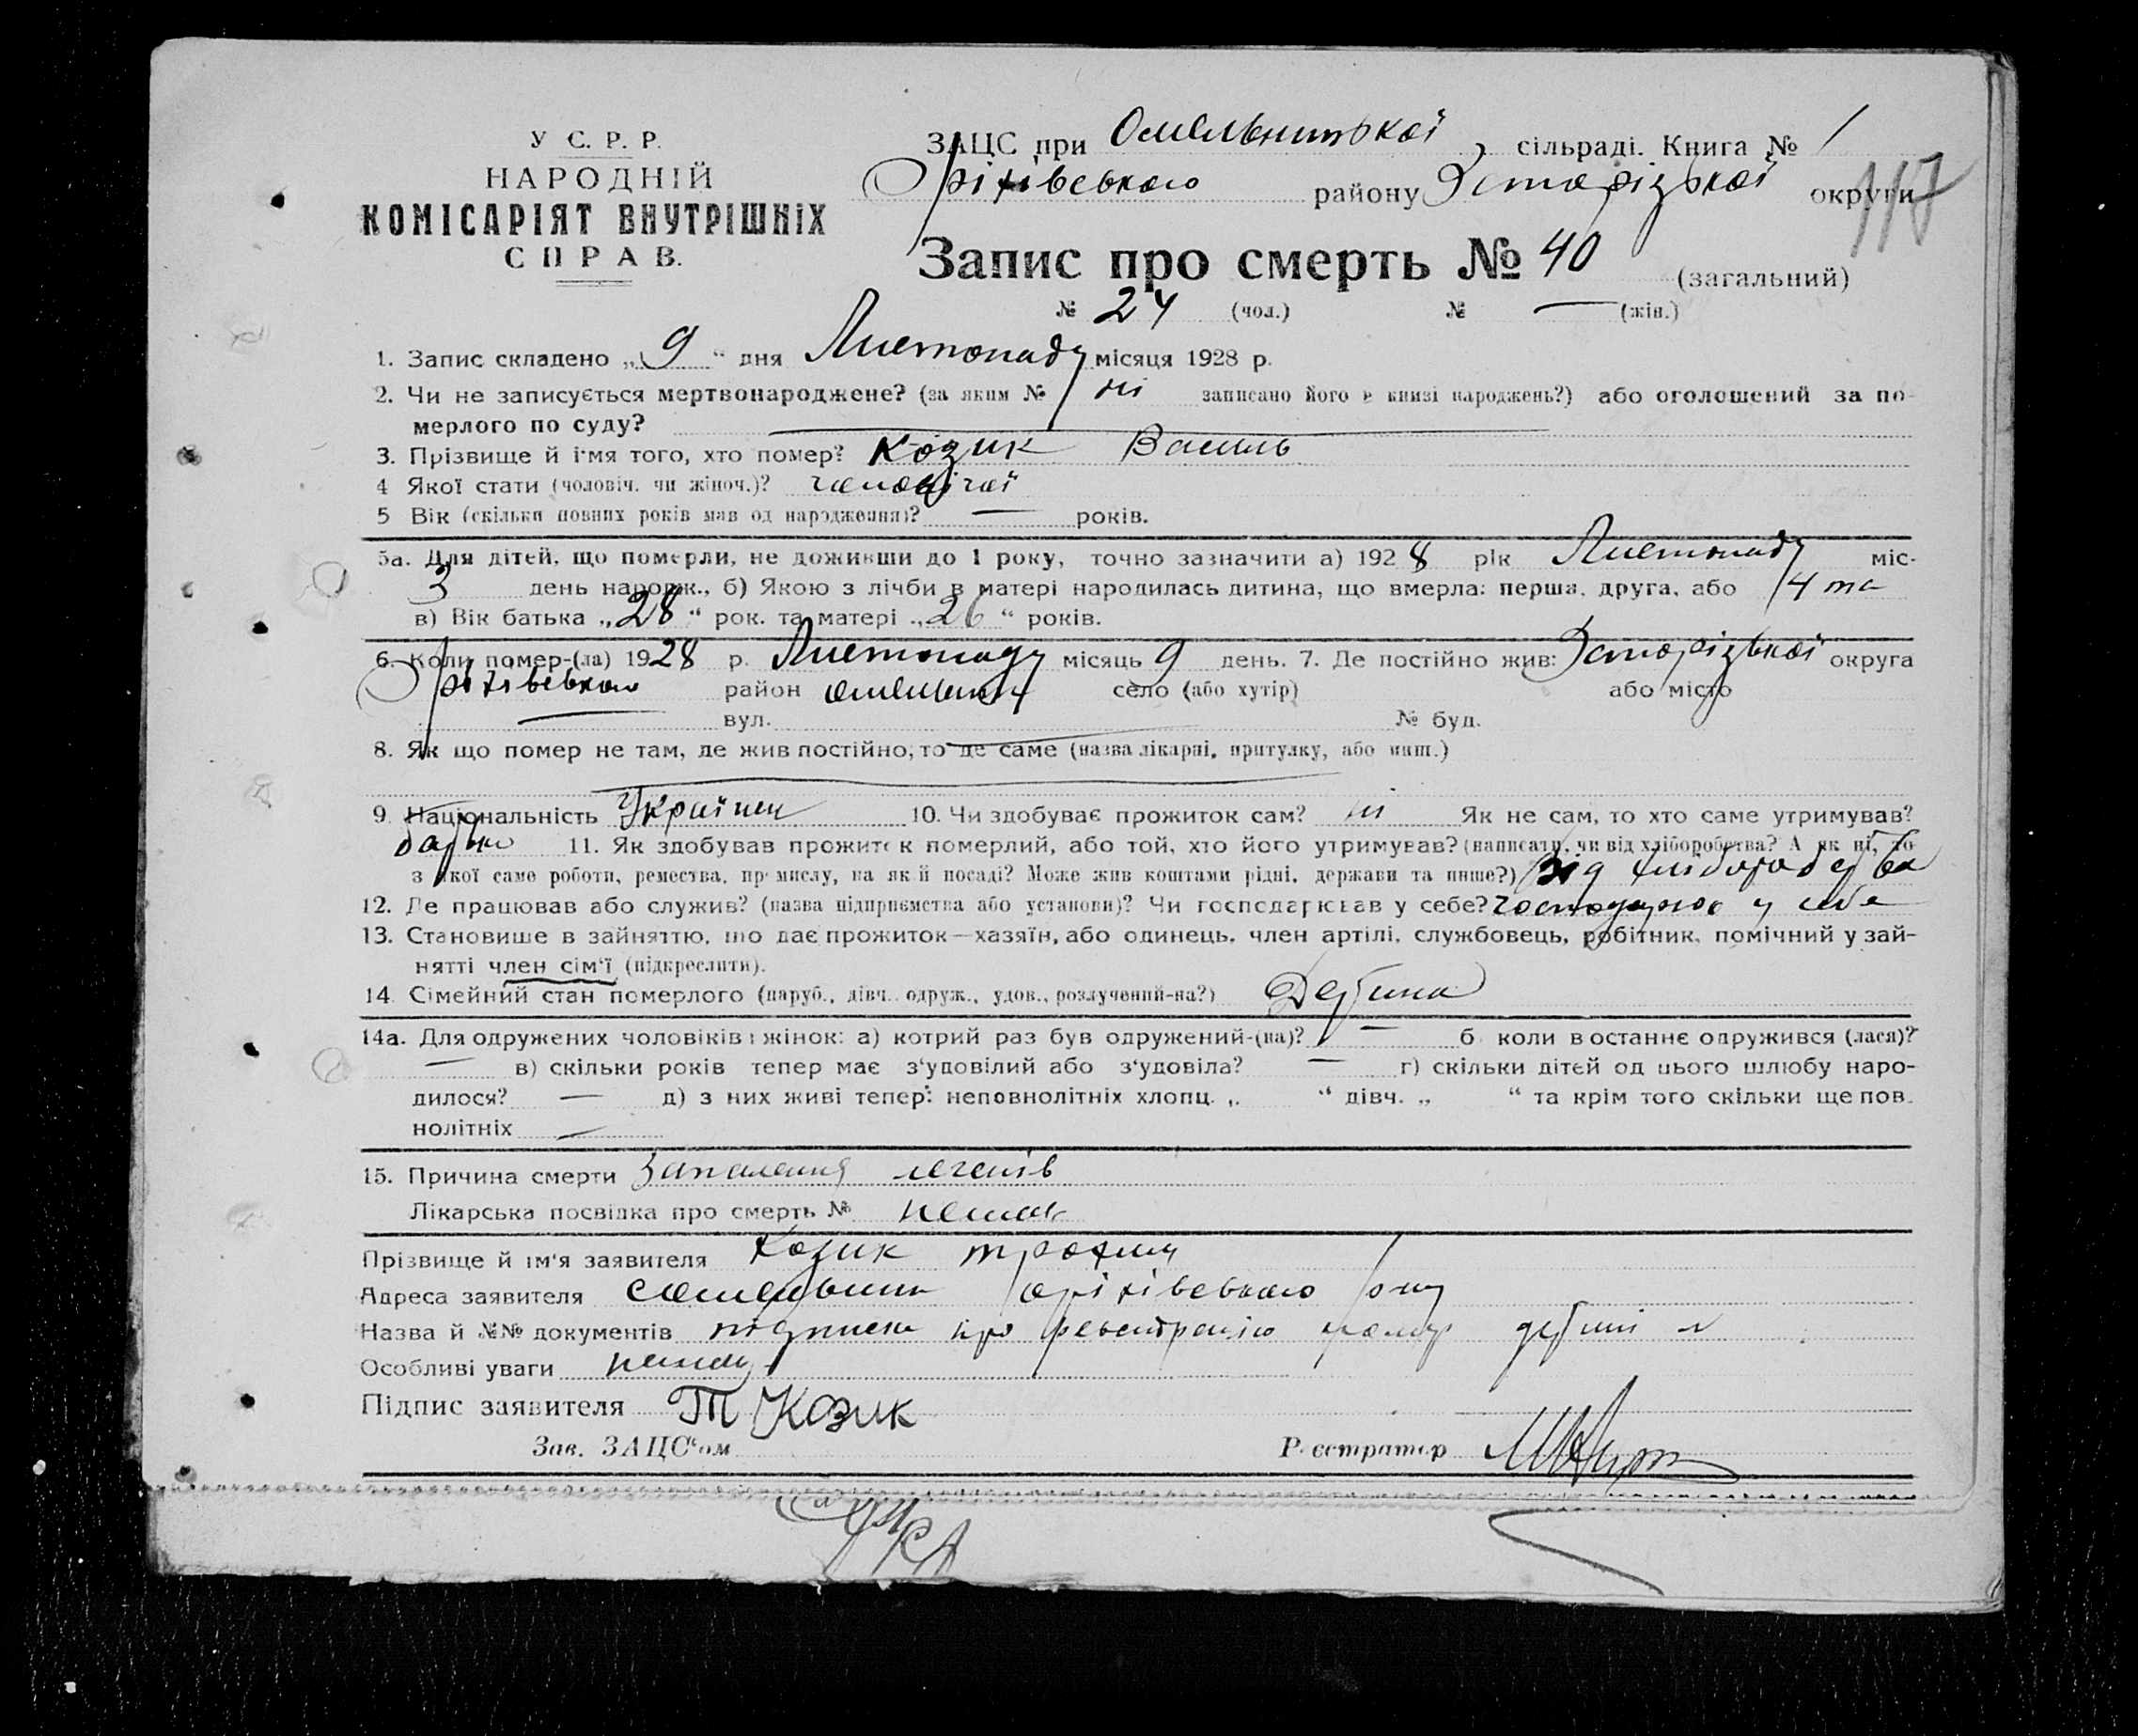 У С. Р. Р.
НАРОДНІЙ
КОМІСАРІЯТ ВНУТРІШНІХ
СПРАВ.
ЗАЦС при Омельницької сільраді. Книга № 1
Оріхівського району Запорізької округи
117
Запис про смерть № 40 (загальний)
№ 24 (чол.) № — (жін.)
1. Запис складено „9“ дня Листопаду місяця 1928 р.
2. Чи не записується мертвонароджене? (за яким № ні записано його в книзі народжень?) або оголошений за по-
мерлого по суду? —
3. Прізвище й ім'я того, хто помер? Козик Василь
4 Якої стати (чоловіч. чи жіноч.)? чоловічої
5 Вік (скільки повних років мав од народження)? — років.
5а. Для дітей, що померли, не доживши до 1 року, точно зазначити а) 1928 рік Листопаду міс-
3 день народж., б) Якою з лічби в матері народилась дитина, що вмерла: перша, друга, або 4 та
в) Вік батька „28“ рок. та матері „26“ років.
6. Коли помер-(ла) 1928 р. Листопаду місяць 9 день. 7. Де постійно жив: Запорізької округа
Оріхівського район Омельник село (або хутір) або місто
— вул. № буд.
8. Як що помер не там, де жив постійно, то де саме (назва лікарні, притулку, або инш.)
—
9. Національність Українец 10. Чи здобуває прожиток сам? ні Як не сам, то хто саме утримував?
батько 11. Як здобував прожиток померлий, або той, хто його утримував? (написати, чи від хліборобства? А як ні, то
з якої саме роботи, ремества, промислу, на якій посаді? Може жив коштами рідні, держави та инше?) Від хліборобства
12. Де працював або служив? (назва підприємства або установи)? Чи господарював у себе? господарював у себе
13. Становище в зайняттю, що дає прожиток—хазяїн, або одинець, член артілі, службовець, робітник, помічний у зай-
нятті член сім'ї (підкреслити).
14. Сімейний стан померлого (паруб., дівч. одруж., удов., розлучений-на?) Дитина
14а. Для одружених чоловіків і жінок: а) котрий раз був одружений-(на)? — б коли востаннє одружився (лася)?
— в) скільки років тепер має з'удовілий або з'удовіла? — г) скільки дітей од цього шлюбу наро-
дилося? — д) з них живі тепер: неповнолітніх хлопц. „ “ дівч. „ “ та крім того скільки ще пов-
нолітніх —
15. Причина смерти Запалення легенів
Лікарська посвідка про смерть № немає
Прізвище й ім'я заявителя Козик Трохим
Адреса заявителя с Омельник Оріхівського р-ну
Назва й №№ документів про реєстрацію
Особливі уваги немає
Підпис заявителя Т Козик
Зав. ЗАЦС'ом Реєстратор